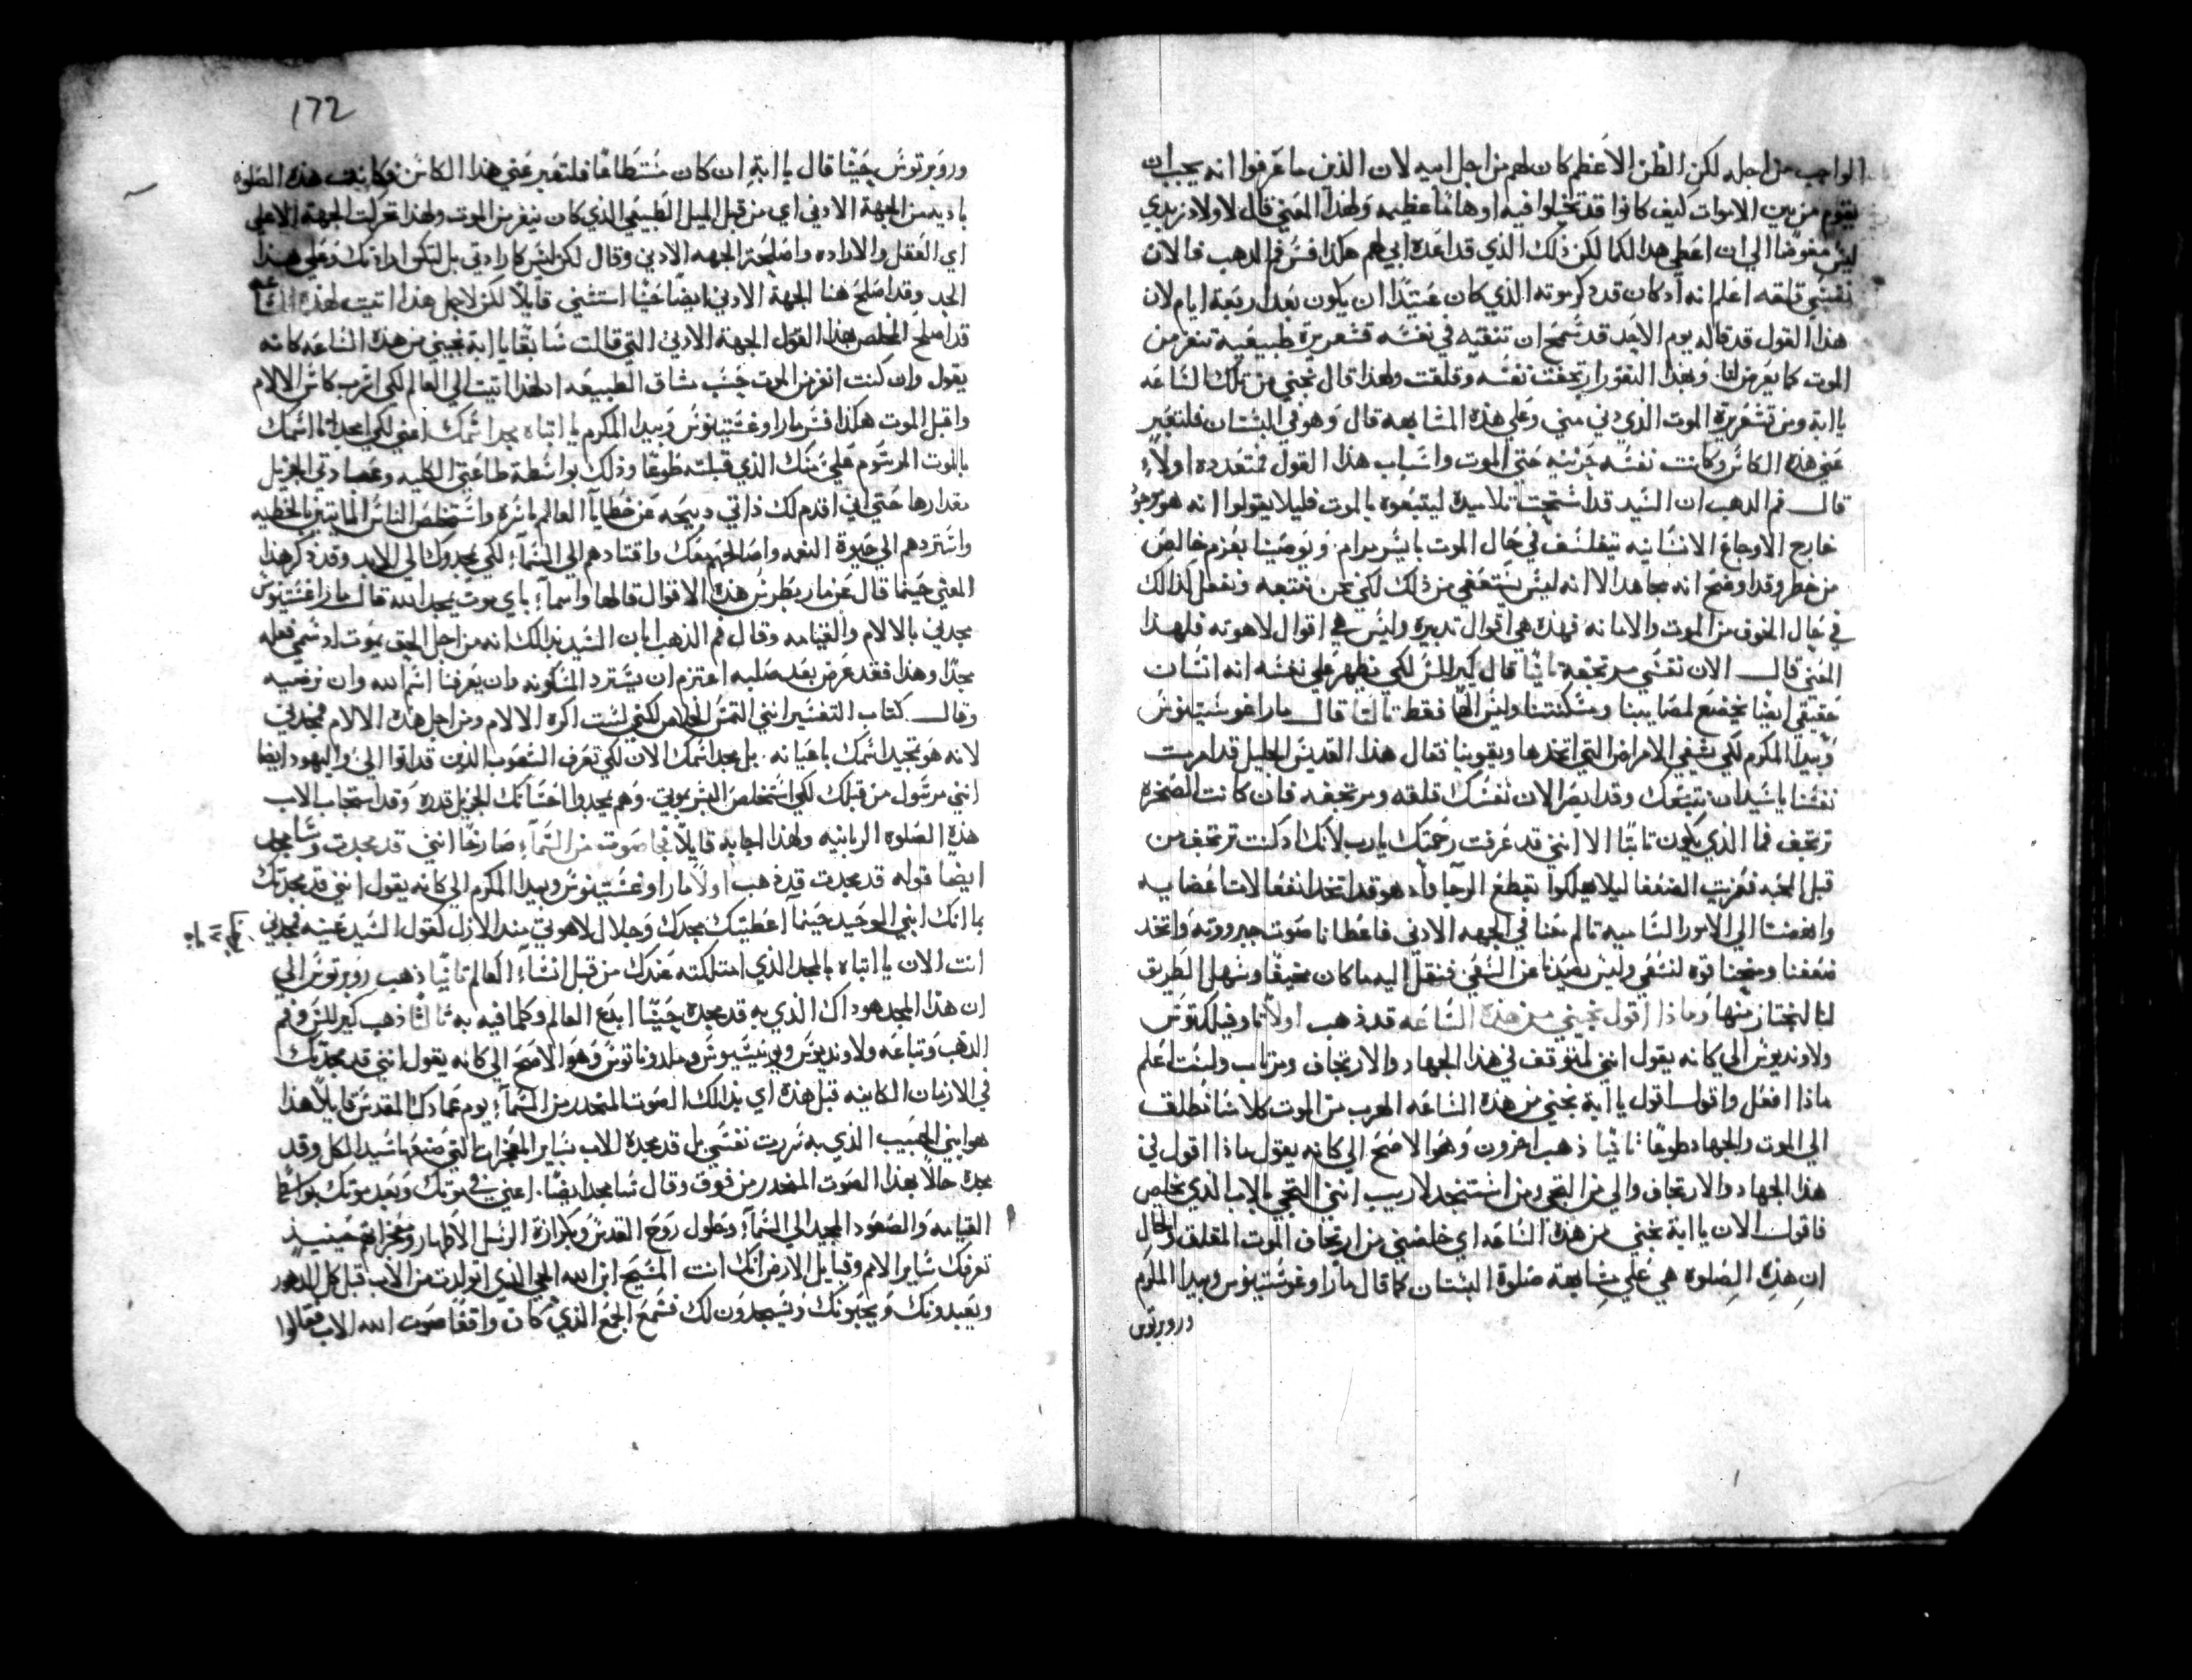 الواجب من اجله لكن الظن الاعظم كان لهم من اجل اميه لان الذين ما عرفوا انه يجب ان
يقوم من بين الاموات كيف كانوا قد تخيلوا فيه اوهاما عظيمه ولهذا المعني قال لاولاد زبدي
ليس مفوضا الي ان اعطي هذا لكما لكن ذلك الذي قد اعده ابي لهم هكذا فسر فم الدهب فالان
نفسي قلقه اعلم انه اد كان قد ذكر موته الذي كان عتيدا ان يكون بعد اربعة ايام لان
هذا القول قد قاله يوم الاحد قد سمح ان تنقيه في نفسه قشعريرة طبيعية تنفر من
الموت كما يعرض لنا وبهذا النفور ارتجفت نفسه وقلقت ولهذا قال نجني من تلك الساعه
يا ابة ومن قشعريرة الموت الذي دني مني وعلي هذه المشابهه قال وهو في البستان فلتعبر
عني هذه الكاس وكانت نفسه حزينه حتي الموت واسباب هذا القول متعدده اولاً
قال فم الدهب ان السيد قد استحت تلاميده ليتبعوه بالموت فليلا يقولوا انه هو موجود
خارج الاوجاع الانسانيه يتفلسف في حال الموت بايسر مرام ويوصينا بعزم خالص
من خطر وقد اوضح انه مجاهد الا انه ليس يستعفي من ذلك لكي نحن نتبعه ونفعل كذالك
في حال الخوف من الموت والامانه فهذه هي اقوال تدبيره وليس هي اقوال لاهوته فلهذا
المعني قال الان نفسي مرتجفة ثانيا قال كيرللس لكي يظهر علي نفسه انه انسان
حقيقي ايضا يخضع لمصايبنا ومسكنتنا وليس الها فقط ثالثا قال مار اغوستينوس
وبيدا المكرم لكي يشفي الامراض التي اتخذها ويقوينا فقال هذا القديس الجليل قد امرت
نفسنا يا سيد ان نتبعك وقد ابصر الان نفسك قلقه ومرتجفه فان كانت الصخره
ترتجف فما الذي يكون تابتا الا انني قد عرفت رحمتك يارب لانك اد كنت ترتجف من
قبل المحبه فعزيت الضعفا ليلا يهلكوا بقطع الرجآ وادهو قد اتخد انفعالات اعضايه
وانهضنا الي الامور الساميه تالم معنا في الجهه الادني فاعطانا صوت جبروته واتخد
ضعفنا ومنحنا قوه لنشفي وليس يصدنا عن السعي فنقل اليه ما كان مخيفا وسهل الطريق
لنا لنجتاز منها وماذا اقول نجيني من هذه الساعه قد ذهب اولا تاوفيلكتوس
ولاونديوس الي كانه يقول انني لمتوقف في هذا الجهاد والارتجاف ومرتاب ولست اعلم
ماذا افعل واقول اقول يا ابة نجني من هذه الساعه الهرب من الموت كلا شا نطلق
الي الموت والجهاد طوعا ثانيا ذهب اخرون وهو الاصح الي كانه يقول ماذا اقول في
هذا الجهاد والارتجاف والي من التجي ومن استنجد لا ريب انني التجي بالاب الذي يخلص
فاقول الان يا ابة نجني من هذه الساعه اي خلصني من ارتجاف الموت المقلق والحال
ان هذه الصلوه هي علي مشابهة صلوة البستان كما قال مار اوغوستينوس وبيدا المكرم
وروبرتوس
172
وروبرتوس حيثما قال يا ابة ان كان مستطاعا فلتعبر عني هذا الكاس فكانت هذه الصلوه
باديه من الجهة الادني اي من قبل الميل الطبيعي الذي كان ينفر من الموت ولهذا تحركت الجهة الاعلي
اي العقل والاراده واصلحت الجهه الادني وقال لكن ليس كارادتي بل لتكن ارادتك وعلي هذا
الحد وقد اصلح هنا الجهة الادني ايضا حيثما استثني قايلا لكن لاجل هذا اتيت لهذه الساعه
قد اصلح المخلص بهذا القول الجهة الادني التي قالت سابقا يا ابة نجيني من هذه الساعه كانه
يقول وان كنت انفر من الموت حسب مشاق الطبيعه اد لهذا اتيت الي العالم لكي اشرب كاس الالام
واقبل الموت هكذا فسر مار اوغستينوس وبيدا المكرم يا ابتاه مجد اسمك اعني لكي امجد انا اسمك
بالموت المرسوم علي منك الذي قبلته طوعا وذلك بواسطة طاعتي الكليه وعبادتي الجزيل
مقدارها حتي اني اقدم لك ذاتي دبيحه عن خطايا العالم باسره واستخلص الناس المايتين بالخطيه
واستردهم الي حيوة النعمه واصالحهم معك واقتادهم الي السمآ لكي يمجدوك الي الابد وقد ذكر هذا
المعني حيثما قال عن مار بطرس هذه الاقوال قالها واسما باي موت يمجد الله قال مار اغستينوس
مجدني بالالام والقيامه وقال فم الذهب ابان السيد بذالك انه من اجل الحق يموت اد سمي فعله
مجدا وهذا فقد عرض بعد صلبه اعتزم ان يسترد المسكونه وان يعرفنا اسم الله وان نرضيه
وقال كتاب التفسير انني التمس الخلاص لكني لست اكره الالام ومن اجل هذه الالام فمجدني
لانه هو تمجيد اسمك باهيانه بل مجد اسمك الان لكي تعرف الشعوب الذين قد اتوا الي واليهود ايضا
انني مرسول من قبلك لكي استخلص البشر بموتي وهم يمجدوا احسانك الجزيل قدره وقد استجاب الاب
هذه الصلوه الربانيه ولهذا اجابه قايلا فجا صوت من السمآ صارخا انني قد مجدت وسامجد
ايضا قوله قد مجدت قد ذهب اولا مار اوغستينوس وبيدا المكرم الي كانه يقول انني قد مجدتك
بما انك ابني الوحيد حينما اعطيتك مجدك وجلال لاهوتي مند الازل كقول السيد عينه فمجدني
انت الان يا ابتاه بالمجد الذي امتلكته عندك من قبل انشآ العالم ثانيا ذهب روبرتوس الي
ان هذا المجد هو داك الذي به قد مجده حيثما ابدع العالم وكلما فيه به ثالثا ذهب كيرللس وفم
الدهب وتباعه ولاونديوس ويونيسيوس وملدوناتوس وهو الاصح الي كانه يقول انني قد مجدتك
في الازمان الكاينه قبل هذه اي بذالك الصوت المنحدر من السمآ يوم عمادك المقدس قايلا هذا
هو ابني الحبيب الذي به سررت نفسي بل قد مجده الاب بساير المعجزات التي صنعها سيد الكل وقد
مجده حالا بهذا الصوت المنحدر من فوق وقال سامجد ايضا اعني في موتك وبعد موتك بواسطة
القيامه والصعود المجيد الي السمآ وحلول روح القدس وبكرازة الرسل الاطهار ومعجزاتهم حينيذ
تعرفك ساير الامم وقبايل الارض انك انت المسيح ابن الله الحي الذي اتولدت من الاب قبل كل الدهور
ويعبدونك ويحبونك ويسجدون لك فسمع الجمع الذي كان واقفا صوت الله الاب فقالوا